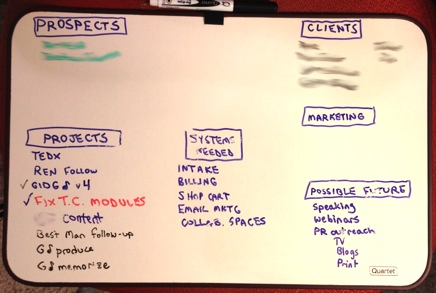 PROSPECTS
CLIENTS
MARKETING
PROJECTS
TEDX
REN FOLLOW
v4
FIX T.C. MODULES
content
Best Man follow-up
produce
SYSTEMS
NEEDED
INTAKE
BILLING
SHOP CART
EMAIL MKTG
SPACES
POSSIBLE FUTURE
Speaking
Webinars
PR outreach
TV
Blogs
Print
Quartet